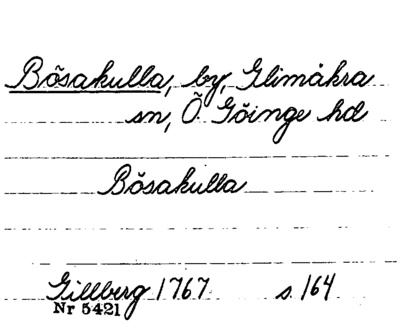 Bösakulla, by, Glimåkra
sn, Ö. Göinge hd
Bösakulla
Gillberg 1767 s. 164
Nr 5421